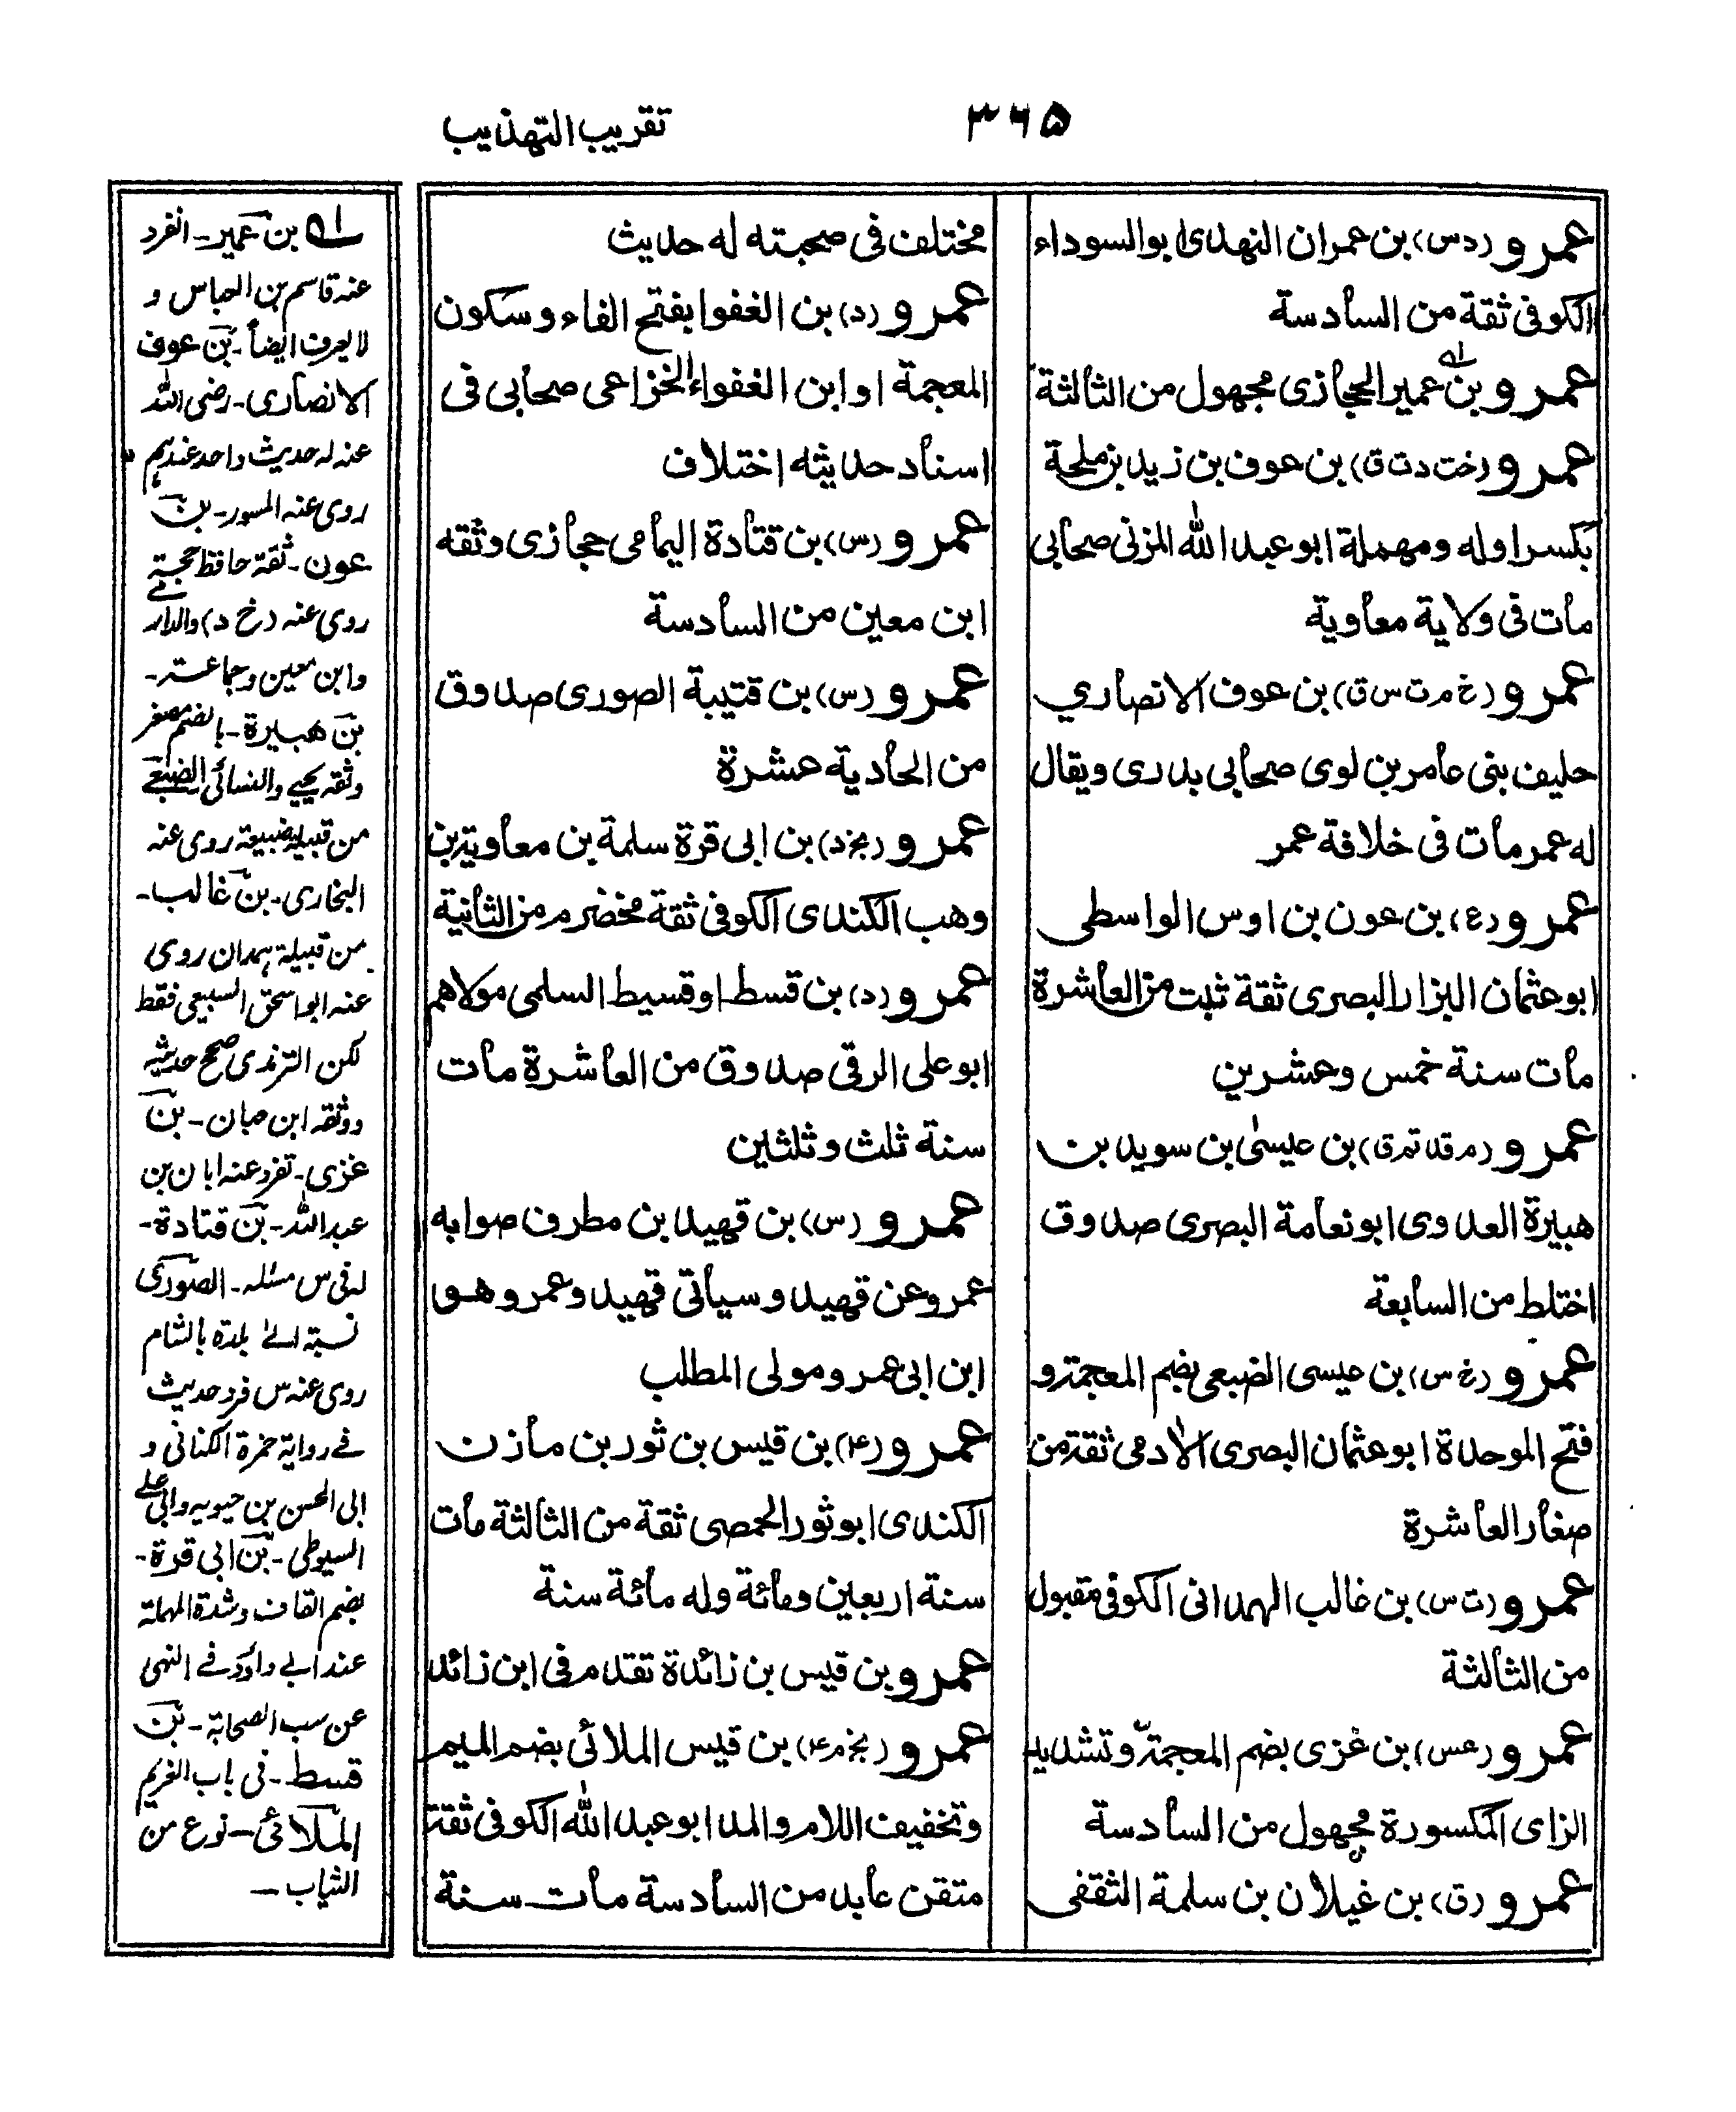 ۳۶۵
تقريب التهذيب
عمرو (د س) بن عمران النهدى ابو السوداء
الكوفى ثقة من السادسة
عمرو بن عمير الحجازى مجهول من الثالثة
عمرو (خت د ت ق) بن عوف بن زيد بن ملحة
بكسر اوله ومهملة ابو عبد الله المزنى صحابى
مات فى ولاية معاوية
عمرو (خ م ت س ق) بن عوف الانصاري
حليف بنى عامر بن لوى صحابى بدرى ويقال
له عمر مات فى خلافة عمر
عمرو (ع) بن عون بن اوس الواسطى
ابو عثمان البزار البصرى ثقة ثبت من العاشرة
مات سنة خمس وعشرين
عمرو (م قد تم ق) بن عيسىٰ بن سويد بن
هبيرة العدوى ابو نعامة البصرى صدوق
اختلط من السابعة
عمرو (خ س) بن عيسى الضبعى بضم المعجمة و
فتح الموحدة ابو عثمان البصرى الادمى ثقة من
صغار العاشرة
عمرو (ت س) بن غالب الهمدانى الكوفى مقبول
من الثالثة
عمرو (عس) بن غزى بضم المعجمة وتشديد
الزاى المكسورة مجهول من السادسة
عمرو (ق) بن غيلان بن سلمة الثقفى
مختلف فى صحبته له حديث
عمرو (د) بن الغفوا بفتح الفاء وسكون
المعجمة او ابن الغفواء الخزاعى صحابى فى
اسناد حديثه اختلاف
عمرو (س) بن قتادة اليمامى حجازى وثقه
ابن معين من السادسة
عمرو (س) بن قتيبة الصورى صدوق
من الحادية عشرة
عمرو (بخ د) بن ابى قرة سلمة بن معاوية بن
وهب الكندى الكوفى ثقة مخضرم من الثانية
عمرو (د) بن قسط او قسيط السلمى مولاهم
ابو على الرقى صدوق من العاشرة مات
سنة ثلث وثلثين
عمرو (س) بن قهيد بن مطرف صوابه
عمرو عن قهيد وسيأتى قهيد وعمرو هو
ابن ابى عمرو مولى المطلب
عمرو (۴) بن قيس بن ثور بن مازن
الكندى ابو ثور الحمصى ثقة من الثالثة مات
سنة اربعين ومائة وله مائة سنة
عمرو بن قيس بن زائدة تقدم فى ابن زائد
عمرو (بخ م ۴) بن قيس الملائى بضم الميم
وتخفيف اللام والمد ابو عبد الله الكوفى ثقة
متقن عابد من السادسة مات سنة
له بن عمير۔ انفرد
عنه قاسم بن العباس و
لا يعرف ايضاً۔ بن عوف
الانصارى۔ رضى الله
عنه له حديث واحد عندهم
روى عنه المسور۔ بن
عون۔ ثقة حافظ حجة
روى عنه (خ د) والدارمى
وابن معين وجماعة۔
بن هبيرة۔ بالضم مصغر
وثقه يحيى والنسائى الضبعى
من قبيلة ضبيعة روى عنه
البخارى۔ بن غالب۔
من قبيلة همدان روى
عنه ابو اسحق السبيعى فقط
لكن الترمذى صحح حديثه
ووثقه ابن حبان۔ بن
غزى۔ تفرد عنه ابان بن
عبد الله۔ بن قتادة۔
له فى س مسئلہ۔ الصورى
نسبة الى بلدة بالشام
روى عنه س فرد حديث
فى رواية حمزة الكنانى و
ابى الحسن بن حيويه وابى على
السيوطى۔ بن ابى قرة۔
بضم القاف وشدة المهملة
عند ابى داؤد فى النهى
عن سب الصحابة۔ بن
قسط۔ فى باب الخريم
الملائى۔ نوع من
الثياب۔